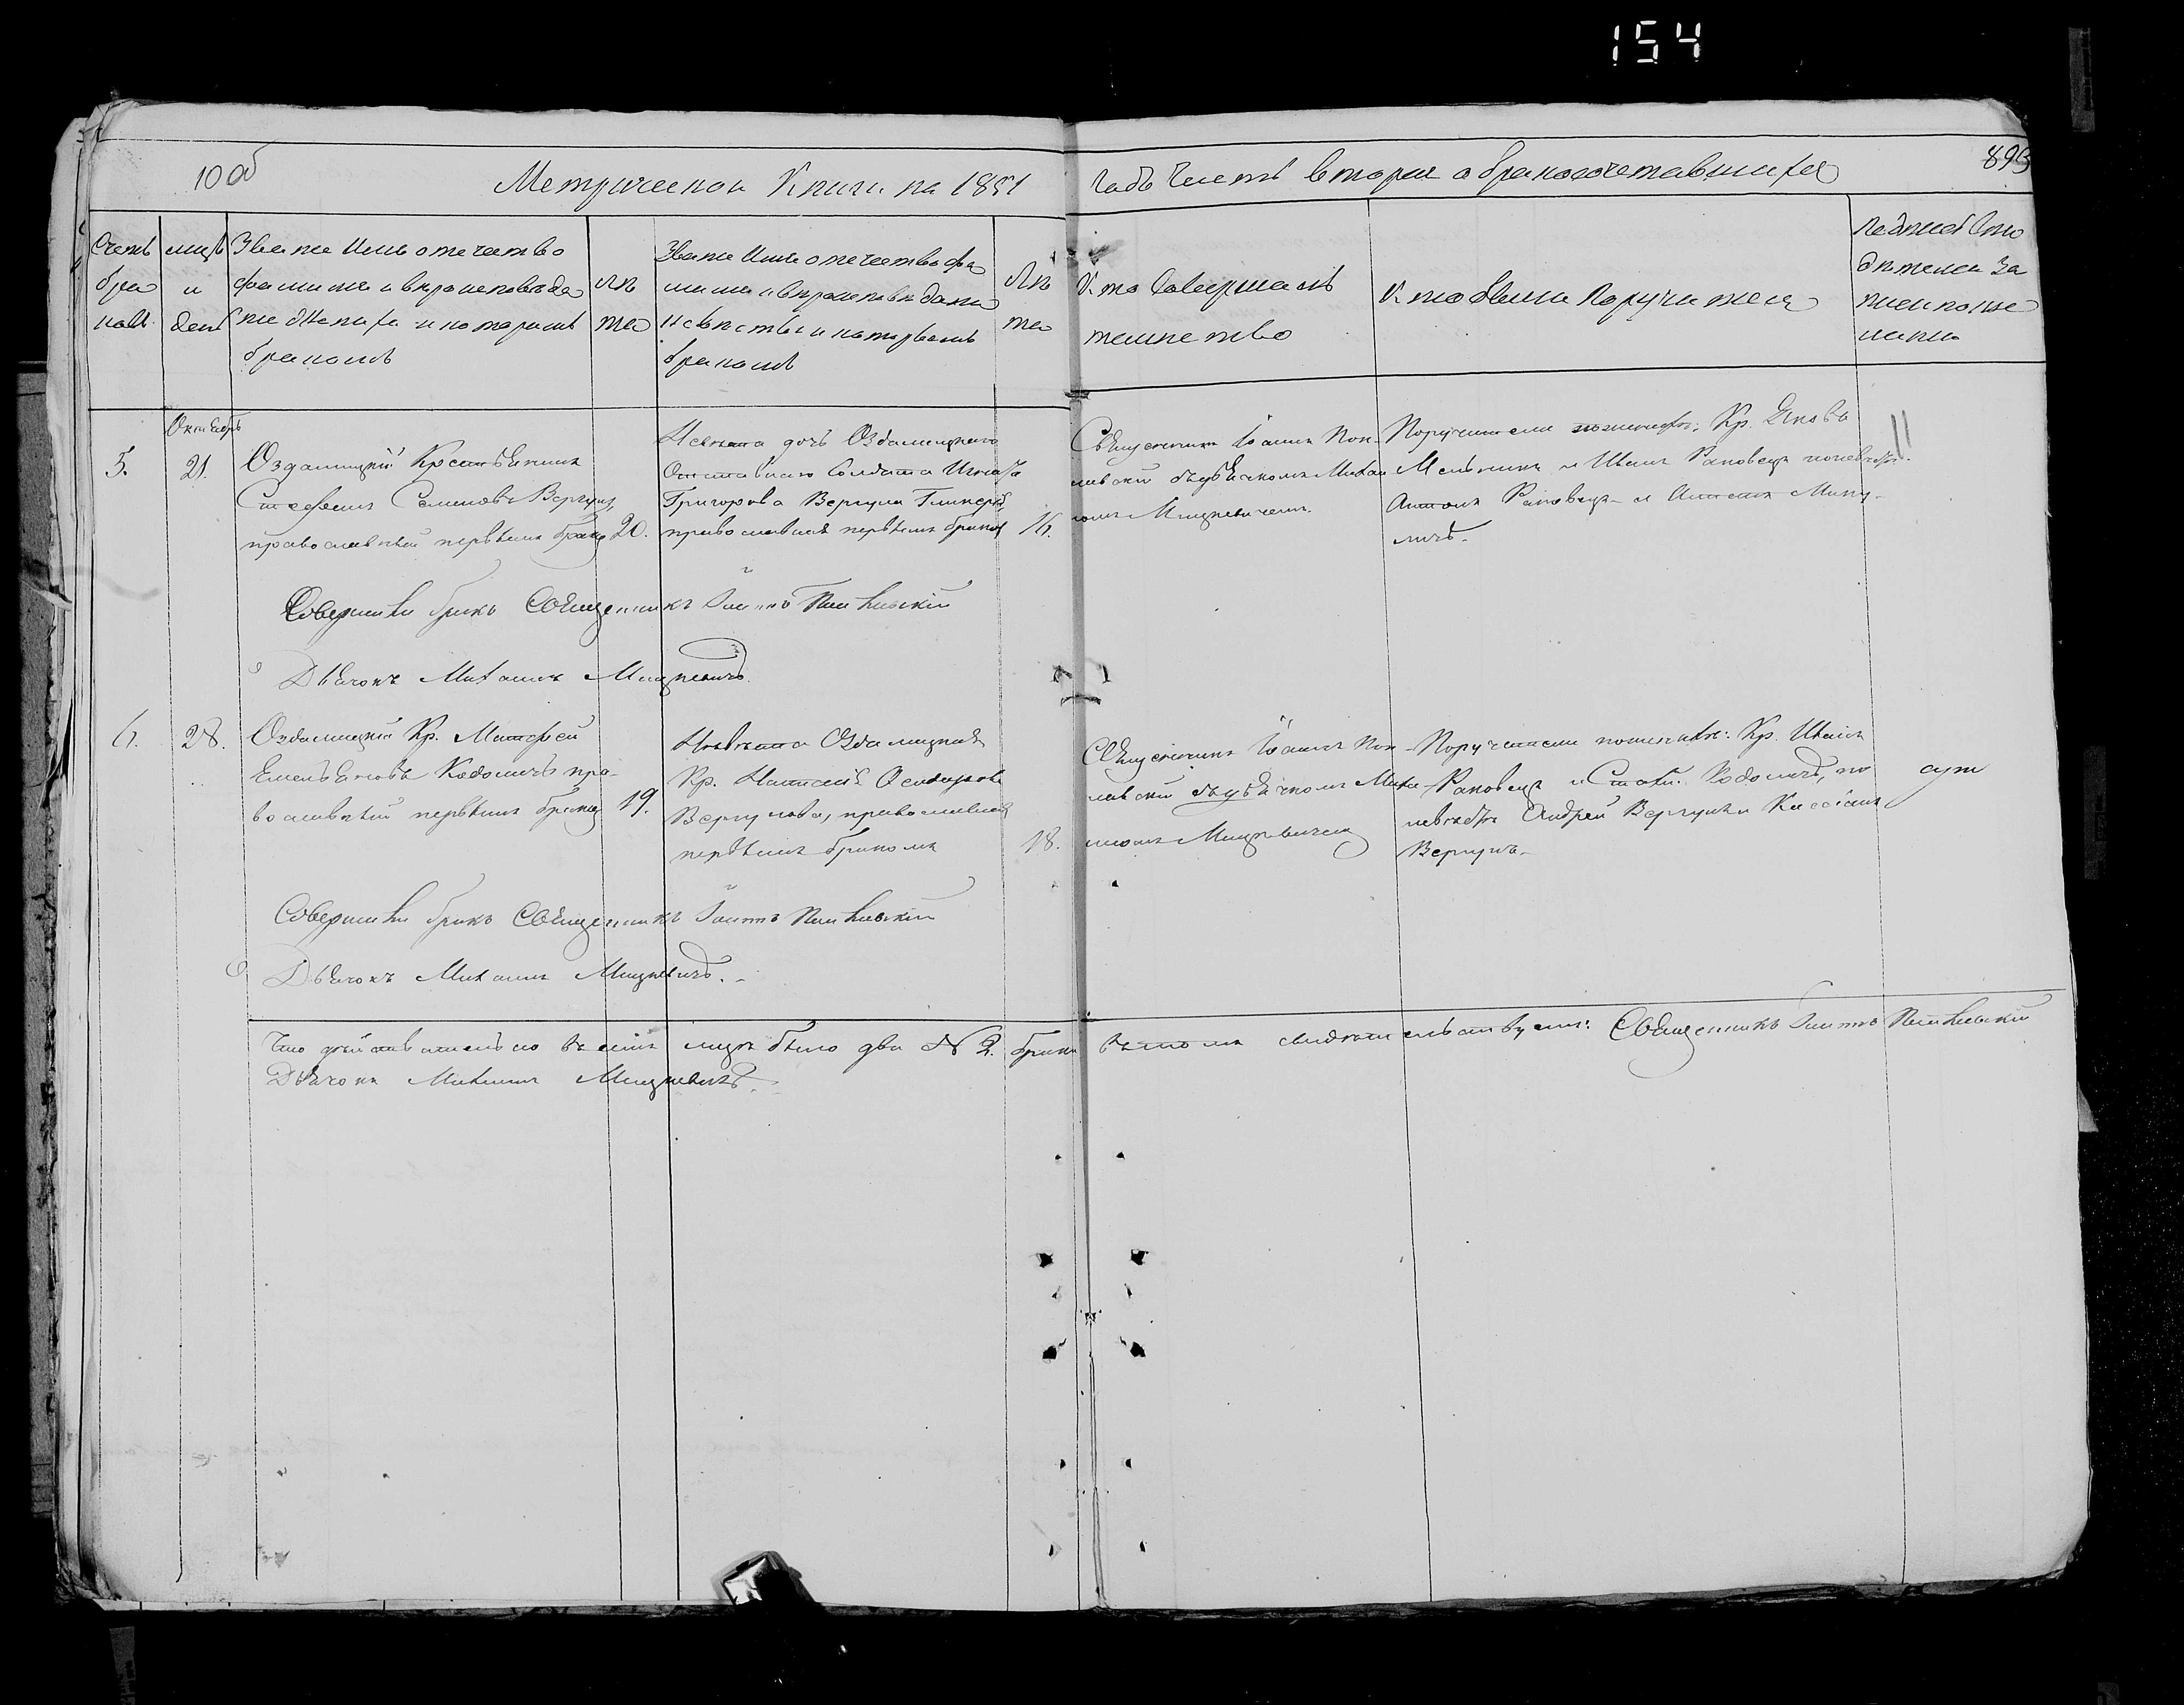 154
10 об
893
Метрической Книги на 1851 годъ Часть вторая о бракосочетавшихся
Счетъ
бра
ковъ
мцъ
и
день
Званіе Имя отечество
фамилія и вкроисповѣда
ніе жениха и которымъ
бракомъ
лѣ
та
Званіе Имя отечество фа
милія и вкроисповѣданіе
невѣсты и которымъ
бракомъ
лѣ
та
Кто совершалъ
таинство
Кто были Поручители
Подпись сви
дѣтелей за
писи по же
ланію
Октябрь
5.
21.
Оздамицкій Крестьянинъ
Стефанъ Семеновъ Вергунъ,
православный первымъ бракомъ
20.
Невѣста дочь Оздамицкаго
Отставнаго Солдата Игнатія
Григорова Вергуна Гликерія,
православная первымъ бракомъ
16.
Священникъ Іоаннъ
съ дьячкомъ Михаи
ломъ Мицкевичемъ.
Поручители по женихѣ: Кр. Яковъ
Мельникъ и Иванъ Раковецъ по невѣстѣ
Антонъ Раковецъ и Антонъ Мику
личъ.
Совершали бракъ Священникъ Іоаннъ
Дьячокъ Михаилъ Мицкевичъ.
6.
28.
Оздамицкій Кр. Матфей
Емельяновъ Кодоличъ пра
вославный первымъ бракомъ
19.
Невѣста Оздамицкая
Кр. Наталія
Вергунова, православная
первымъ бракомъ
18.
Священникъ Іоаннъ
съ дьячкомъ Миха
иломъ Мицкевичемъ
Поручители по женихѣ: Кр. Иванъ
Раковецъ и Кодоличъ, по
невѣстѣ Андрей Вергунъ и Кассіанъ
Вергунъ.
Совершали бракъ Священникъ Іоаннъ
Дьячокъ Михаилъ Мицкевичъ.
Что дѣйствительно въ семъ мцѣ было два № 2. брака въ томъ свидѣтельствуемъ: Священникъ Іоаннъ
Дьячокъ Михаилъ Мицкевичъ.